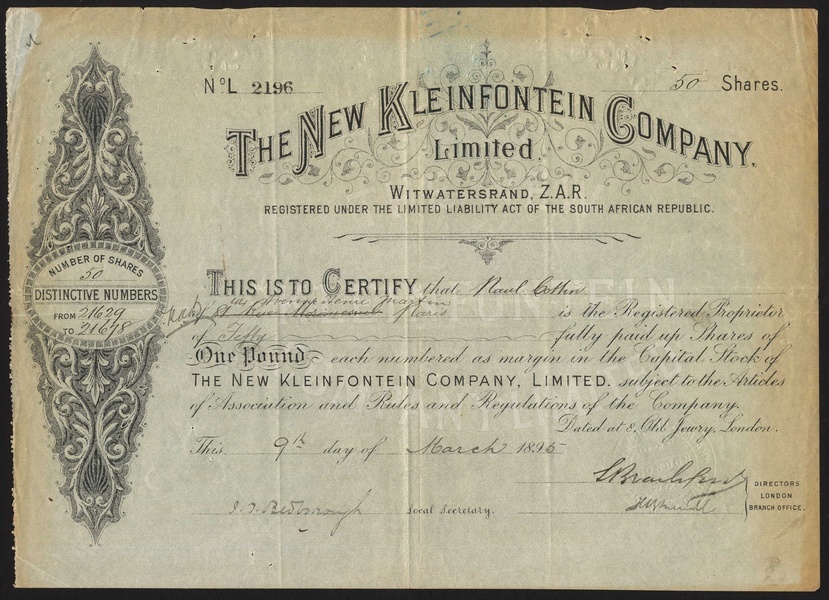 NºL 2196
50 Shares.
THE NEW KLEINFONTEIN COMPANY,
Limited.
WITWATERSRAND, Z.A.R.
REGISTERED UNDER THE LIMITED LIABILITY ACT OF THE SOUTH AFRICAN REPUBLIC.
NUMBER OF SHARES
50
DISTINCTIVE NUMBERS
FROM 21629
TO 21678
THIS IS TO CERTIFY that
Avenue Henri Martin
Paris is the Registered Proprietor
of Fifty fully paid up Shares of
One Pound each numbered as margin in the Capital Stock of
THE NEW KLEINFONTEIN COMPANY, LIMITED. subject to the Articles
of Association and Rules and Regulations of the Company.
Dated at 8, Old Jewry, London.
This 9th day of March 1895
Local Secretary.
DIRECTORS
LONDON
BRANCH OFFICE.